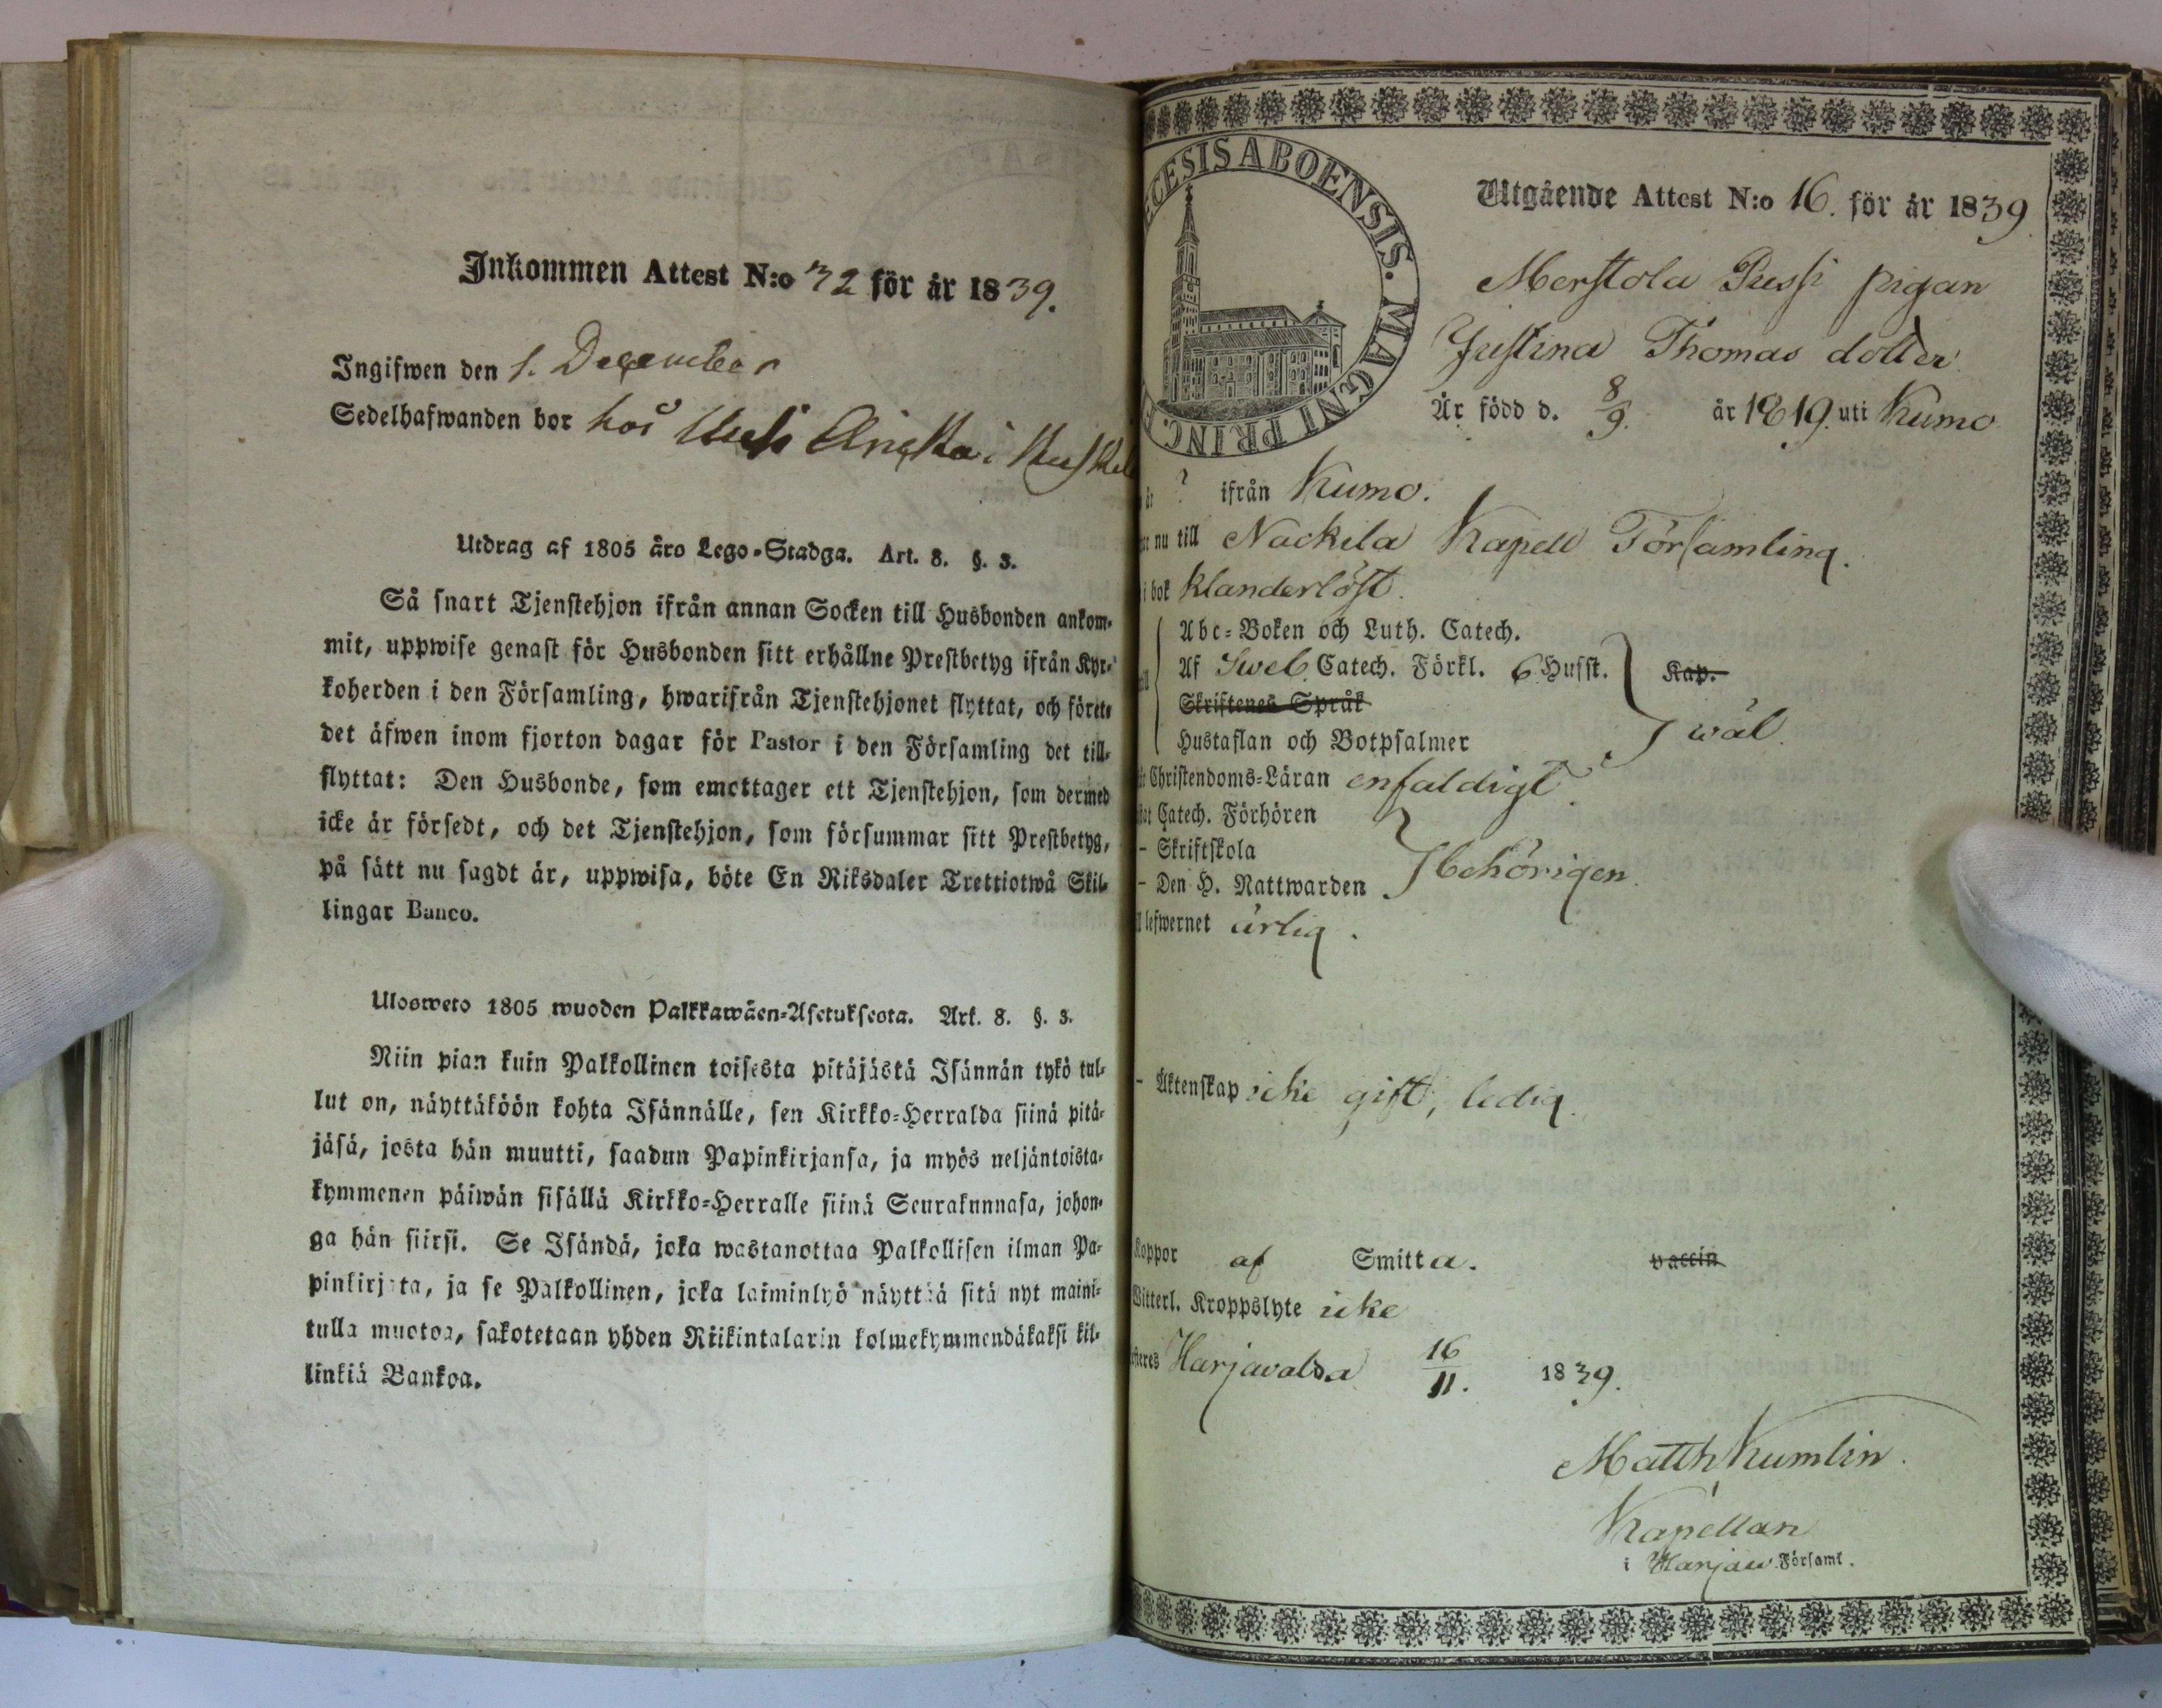 Inkommen Attest N:o 32 för år 1839.
Ingifwen den 1. December
Sedelhafwanden bor hos
Utdrag af 1805 års Lego-Stadga. Art. 8. §. 3.
Så snart Tjenstehjon ifrån annan Socken till Husbonden ankom-
mit, uppwise genast för Husbonden sitt erhållne Prestbetyg ifrån Kyr-
koherden i den Församling, hwarifrån Tjenstehjonet flyttat, och förete
det äfwen inom fjorton dagar för Pastor i den Församling det till-
flyttat: Den Husbonde, som emottager ett Tjenstehjon, som dermed
icke är försedt, och det Tjenstehjon, som försummar sitt Prestbetyg,
på sätt nu sagdt är, uppwisa, böte En Riksdaler Trettiotwå Skil-
lingar Banco.
Ulosweto 1805 wuoden Palkkawäen-Asetuksesta. Art. 8. §. 3.
Niin pian kuin Palkollinen toisesta pitäjästä Isännän tykö tul-
lut on, näyttäköön kohta Isännälle, sen Kirkko-Herralda siinä pitä-
jäsä, josta hän muutti, saadun Papinkirjansa, ja myös neljäntoista-
kymmenen päiwän sisällä Kirkko-Herralle siinä Seurakunnasa, johon-
ga hän siirsi. Se Isändä, joka wastanottaa Palkollisen ilman Pa-
pinkirjata, ja se Palkollinen, joka laiminlyö näyttää sitä nyt maini-
tulla muotoa, sakotetaan yhden Riikintalarin kolmekymmendäkaksi kil-
linkiä Bankoa.
ECESIS ABOENSIS. MAGNI PRINC. F
Utgående Attest N:o 16. för år 1839
Merstola Pussi pigan
Justina Thomas dotter
Är född d. 8/9. år 1819. uti Kumo
? ifrån Kumo.
nu till Nackila Kapell Församling.
i bok klanderlöst.
Abc-Boken och Luth. Catech.
Af Sweb. Catech. Förkl. 6 Husst. Kap.
Skriftenes Språk
Hustaflan och Botpsalmer wäl.
Christendoms-Läran enfaldigt.
Catech. Förhören
- Skriftskola
- Den H. Nattwarden behörigen.
lefwernet ärlig.
- Äktenskap icke gift, ledig.
Koppor af Smitta. vaccin
Witterl. Kroppslyte icke
Harjawalda 16/11. 1839.
Matth Kumlin.
Kapellan
i Harjaw. Församl.